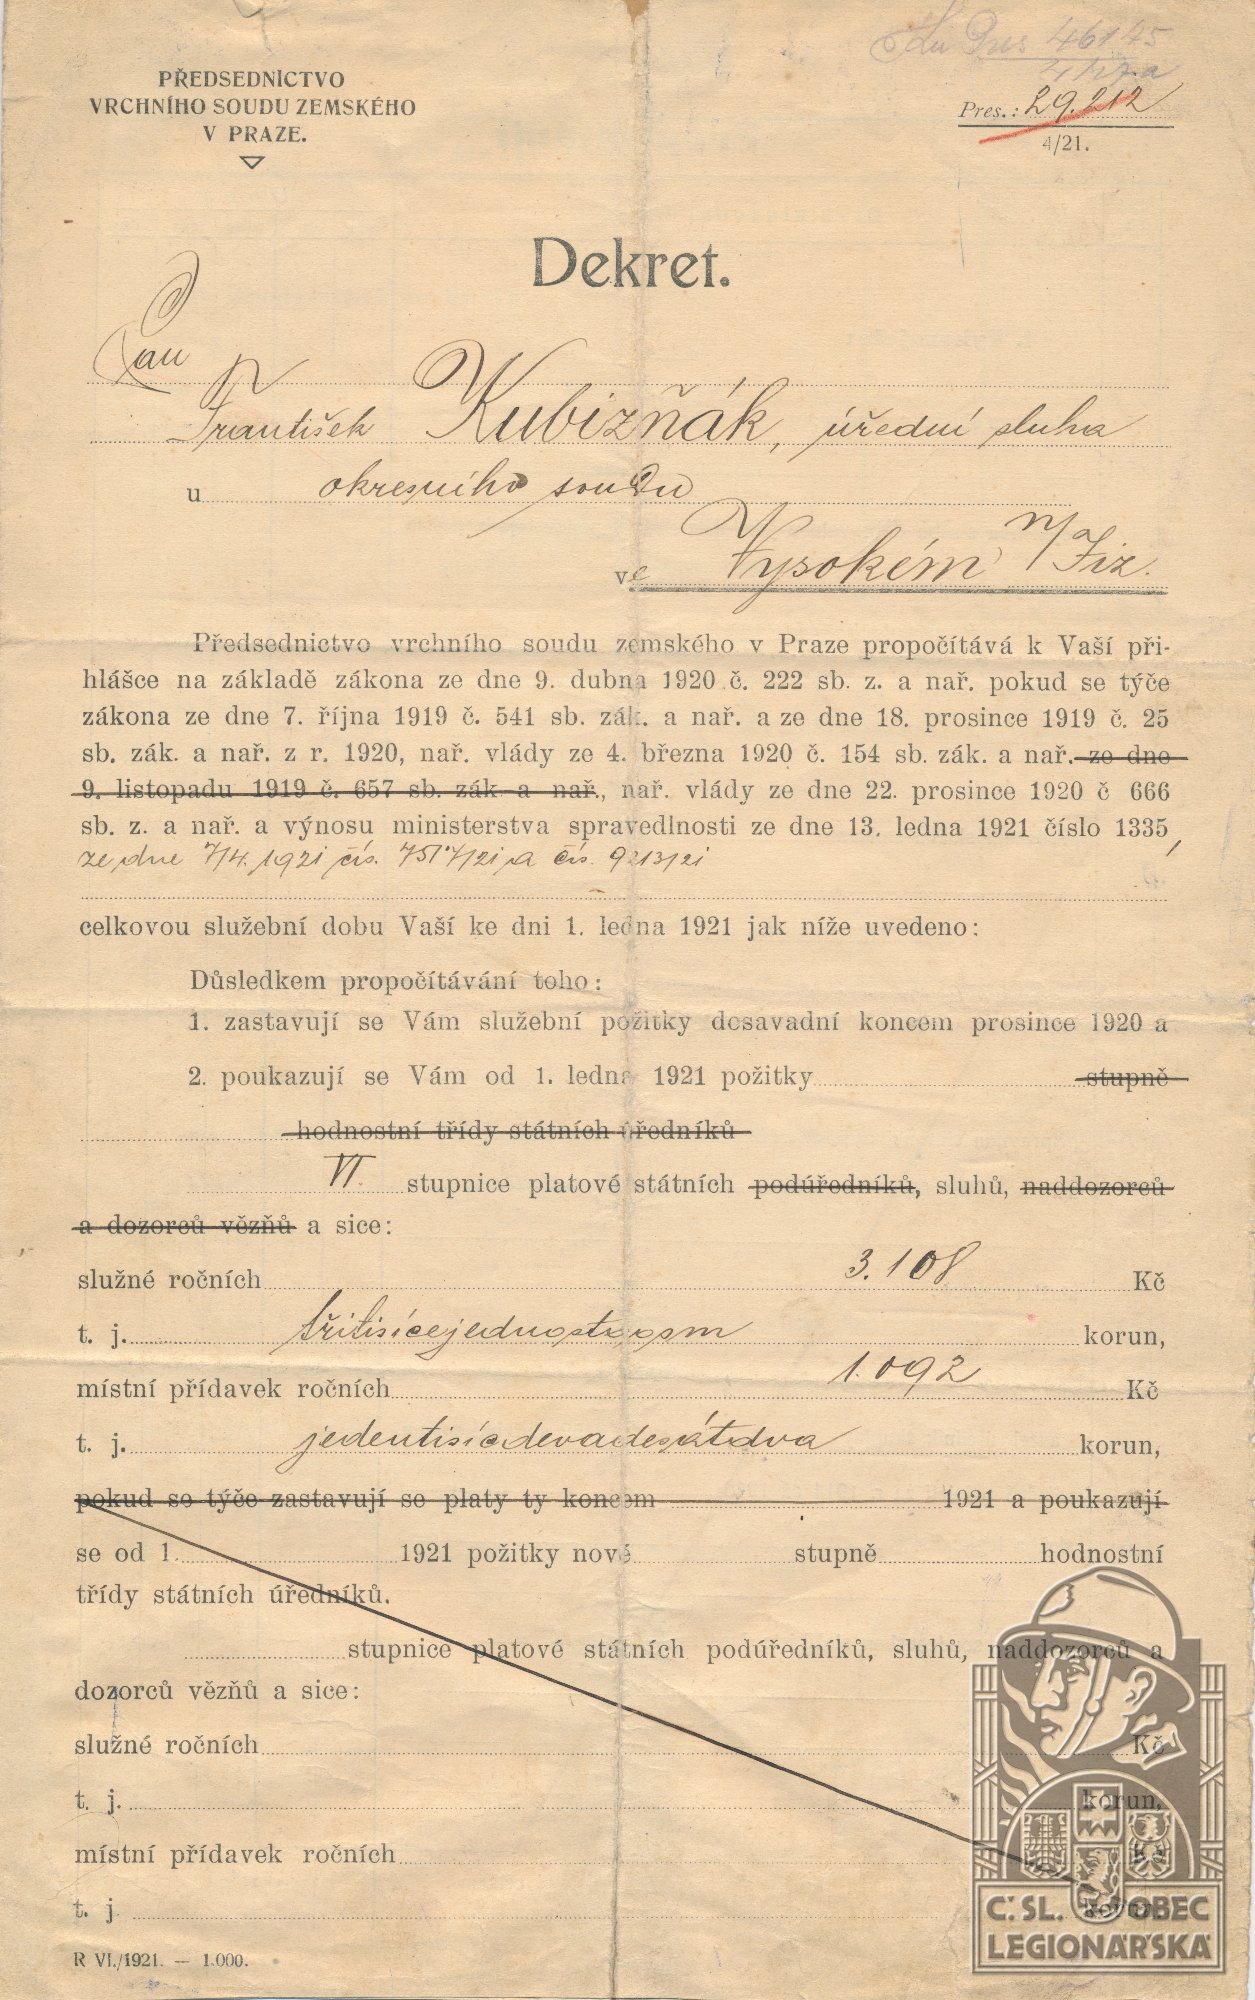 PŘEDSEDNICTVO
VRCHNÍHO SOUDU ZEMSKÉHO
V PRAZE.
46145
Pres.: 29.212
4/21.
Dekret.
Pan
František Kubizňák, úřední sluha
u okresního soudu
ve Vysokém n/Jiz.
Předsednictvo vrchního soudu zemského v Praze propočítává k Vaší při-
hlášce na základě zákona ze dne 9. dubna 1920 č. 222 sb. z. a nař. pokud se týče
zákona ze dne 7. října 1919 č. 541 sb. zák. a nař. a ze dne 18. prosince 1919 č. 25
sb. zák. a nař. z r. 1920, nař. vlády ze 4. března 1920 č. 154 sb. zák. a nař. ze dne
9. listopadu 1919 č. 657 sb. zák a nař., nař. vlády ze dne 22. prosince 1920 č 666
sb. z. a nař. a výnosu ministerstva spravedlnosti ze dne 13. ledna 1921 číslo 1335,
ze dne 7/4 1921 čís. 7517/21 a čís. 9213/21
celkovou služební dobu Vaší ke dni 1. ledna 1921 jak níže uvedeno:
Důsledkem propočítávání toho:
1. zastavují se Vám služební požitky dosavadní koncem prosince 1920 a
2. poukazují se Vám od 1. ledna 1921 požitky stupně
hodnostní třídy státních úředníků
VI. stupnice platové státních podúředníků, sluhů, naddozorců
a dozorců vězňů a sice:
služné ročních 3.108 Kč
t. j. třitisícejednostoosm korun,
místní přídavek ročních 1.092 Kč
t. j. jedentisícdevadesátdva korun,
pokud se týče zastavují se platy ty koncem 1921 a poukazují
se od 1. 1921 požitky nové stupně hodnostní
třídy státních úředníků.
stupnice platové státních podúředníků, sluhů, naddozorců a
dozorců vězňů a sice:
služné ročních Kč
t. j. korun,
místní přídavek ročních Kč
t. j korun,
R VI./1921. — 1.000.
Č. SL. OBEC
LEGIONÁŘSKÁ